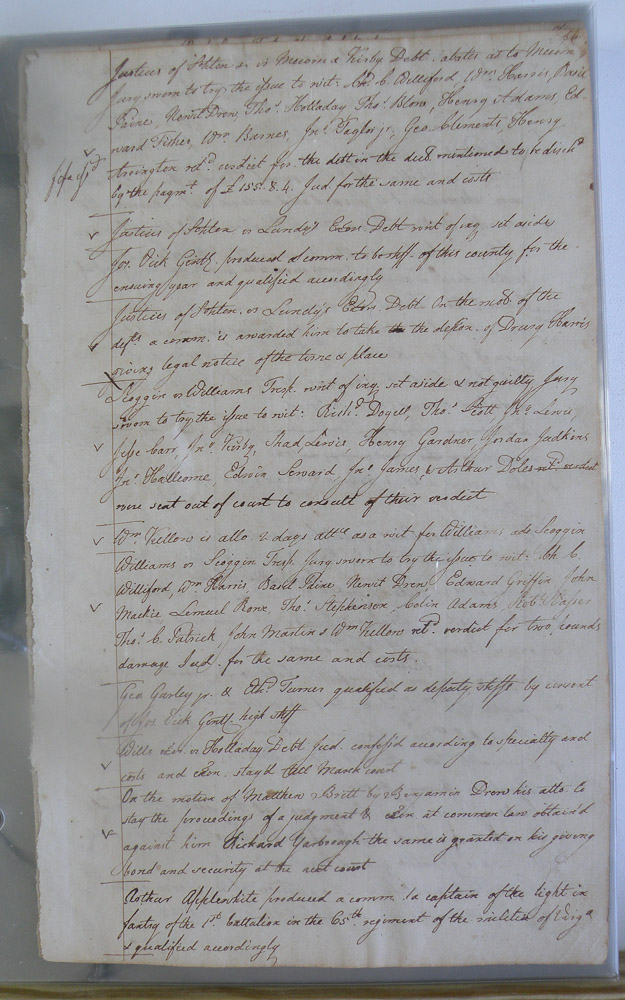 Justices of Sohton. vs Meacom & Kirby Debt. abates as to Meacom
Jury sworn to try the issue to wit: C. Williford, Wm Harris, Basil
Paine, Newit Drew, Tho.s Holladay Tho.s Blow, Henry Adams, Ed-
ward Fisher, Wm Barnes, Jno. Taylor jr, Geo Clements, Henry
retd. verdict for the debt in the decl. mentioned to be disch.d
by the paymt. of £155.8.4. Jud. for the same and costs
Justices of Sohton vs Lundy's Exors. Debt writ of inq. set aside
Jos. Eick Gentl. produced a comm. to be shff. of this county for the
ensuing year and qualified accordingly
Justices of Sohton. vs Lundy's Exors. Debt. On the mo. of the
defts a comm. is awarded him to take the depon. of Drury Harris
giving legal notice of the time & place
Scoggin vs Williams Tresp. writ of inq. set aside & not guilty Jury
sworn to try the issue to wit: Rich.d Doyell, Tho.s Pett Jno. Lewis
Jesse Carr, Jno. Kirby, Shad Lewis, Henry Gardner Jordan Judkins
Jno. Hallcome, Edwin Seward Jno. James, & Arthur Doles retd. verdict
were sent out of court to consult of their verdict
Wm Vellow is allo. 2 days attce as a wit for Williams ads Scoggin
Williams vs Scoggin Tresp. Jury sworn to try the issue to wit: C.
Williford, Wm Harris, Basil Paine Newit Drew, Edward Griffin John
Mackie Lemuel Rone, Tho.s Stephenson, Colin Adams, Rob.t
Tho.s C. Patrick, John Martin & Wm Vellow retd. verdict for two pounds
damage Jud. for the same and costs.
Geo Gurley jr. & Eth.d Turner qualified as deputy shffs by consent
of Jos. Eick Gentl. high shff
Wills exor. vs Holladay Debt Jud. confess'd according to specialty and
costs and exon. stay'd till March court
On the motion of Matthew Britt by Benjamin Drew his atto. to
stay the proceedings of a judgment & exon at common law obtain'd
against him Richard Yarbrough the same is granted on his giving
bond and security at the next court
Arthur Applewhite produced a comm. to captain of the light in-
fantry of the 1st. battalion in the 65th. regiment of the militia of Virga
& qualified accordingly